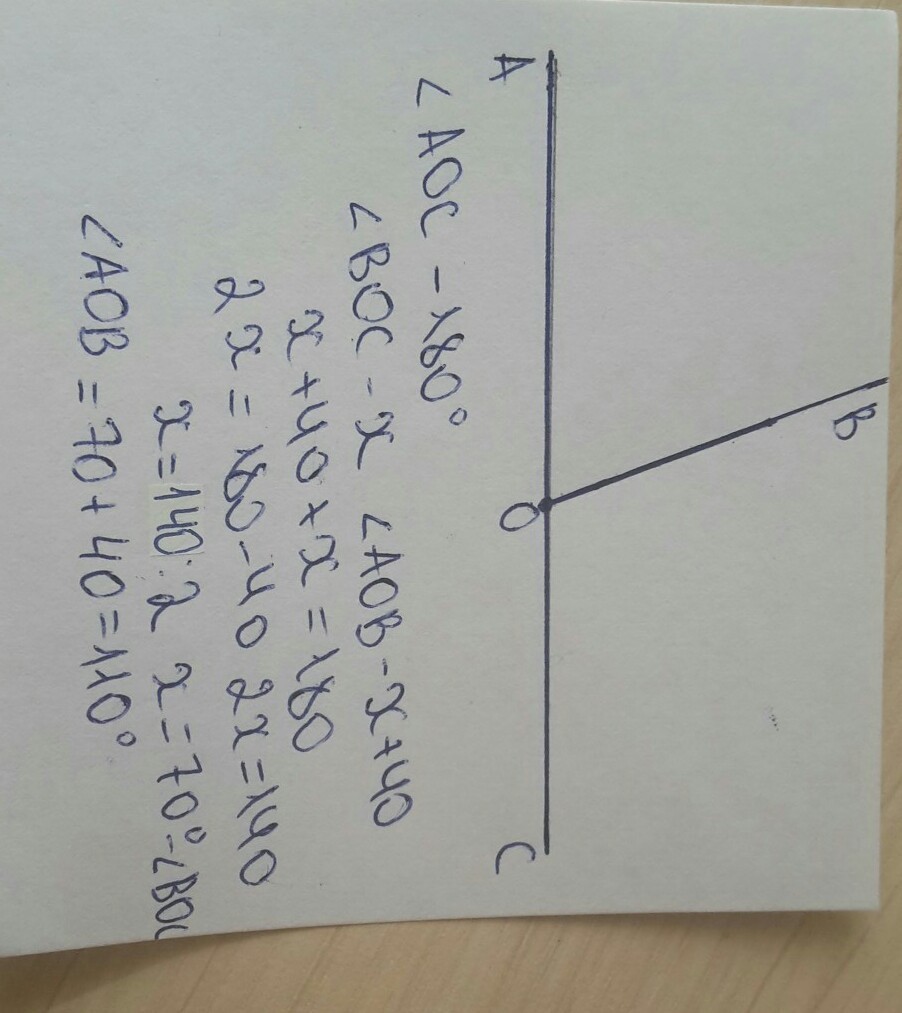 B
A O C
∠AOC - 180°
∠BOC - x ∠AOB - x+40
x+40+x=180
2x=180-40 2x=140
x=140:2 x=70°-∠BOC
∠AOB=70+40=110°